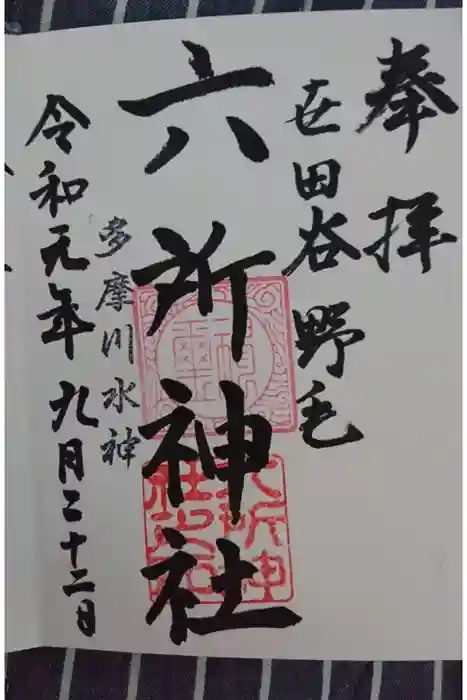 奉拝
世田谷野毛
六所神社
多摩川水神
令和元年九月二十二日
六所神社之印